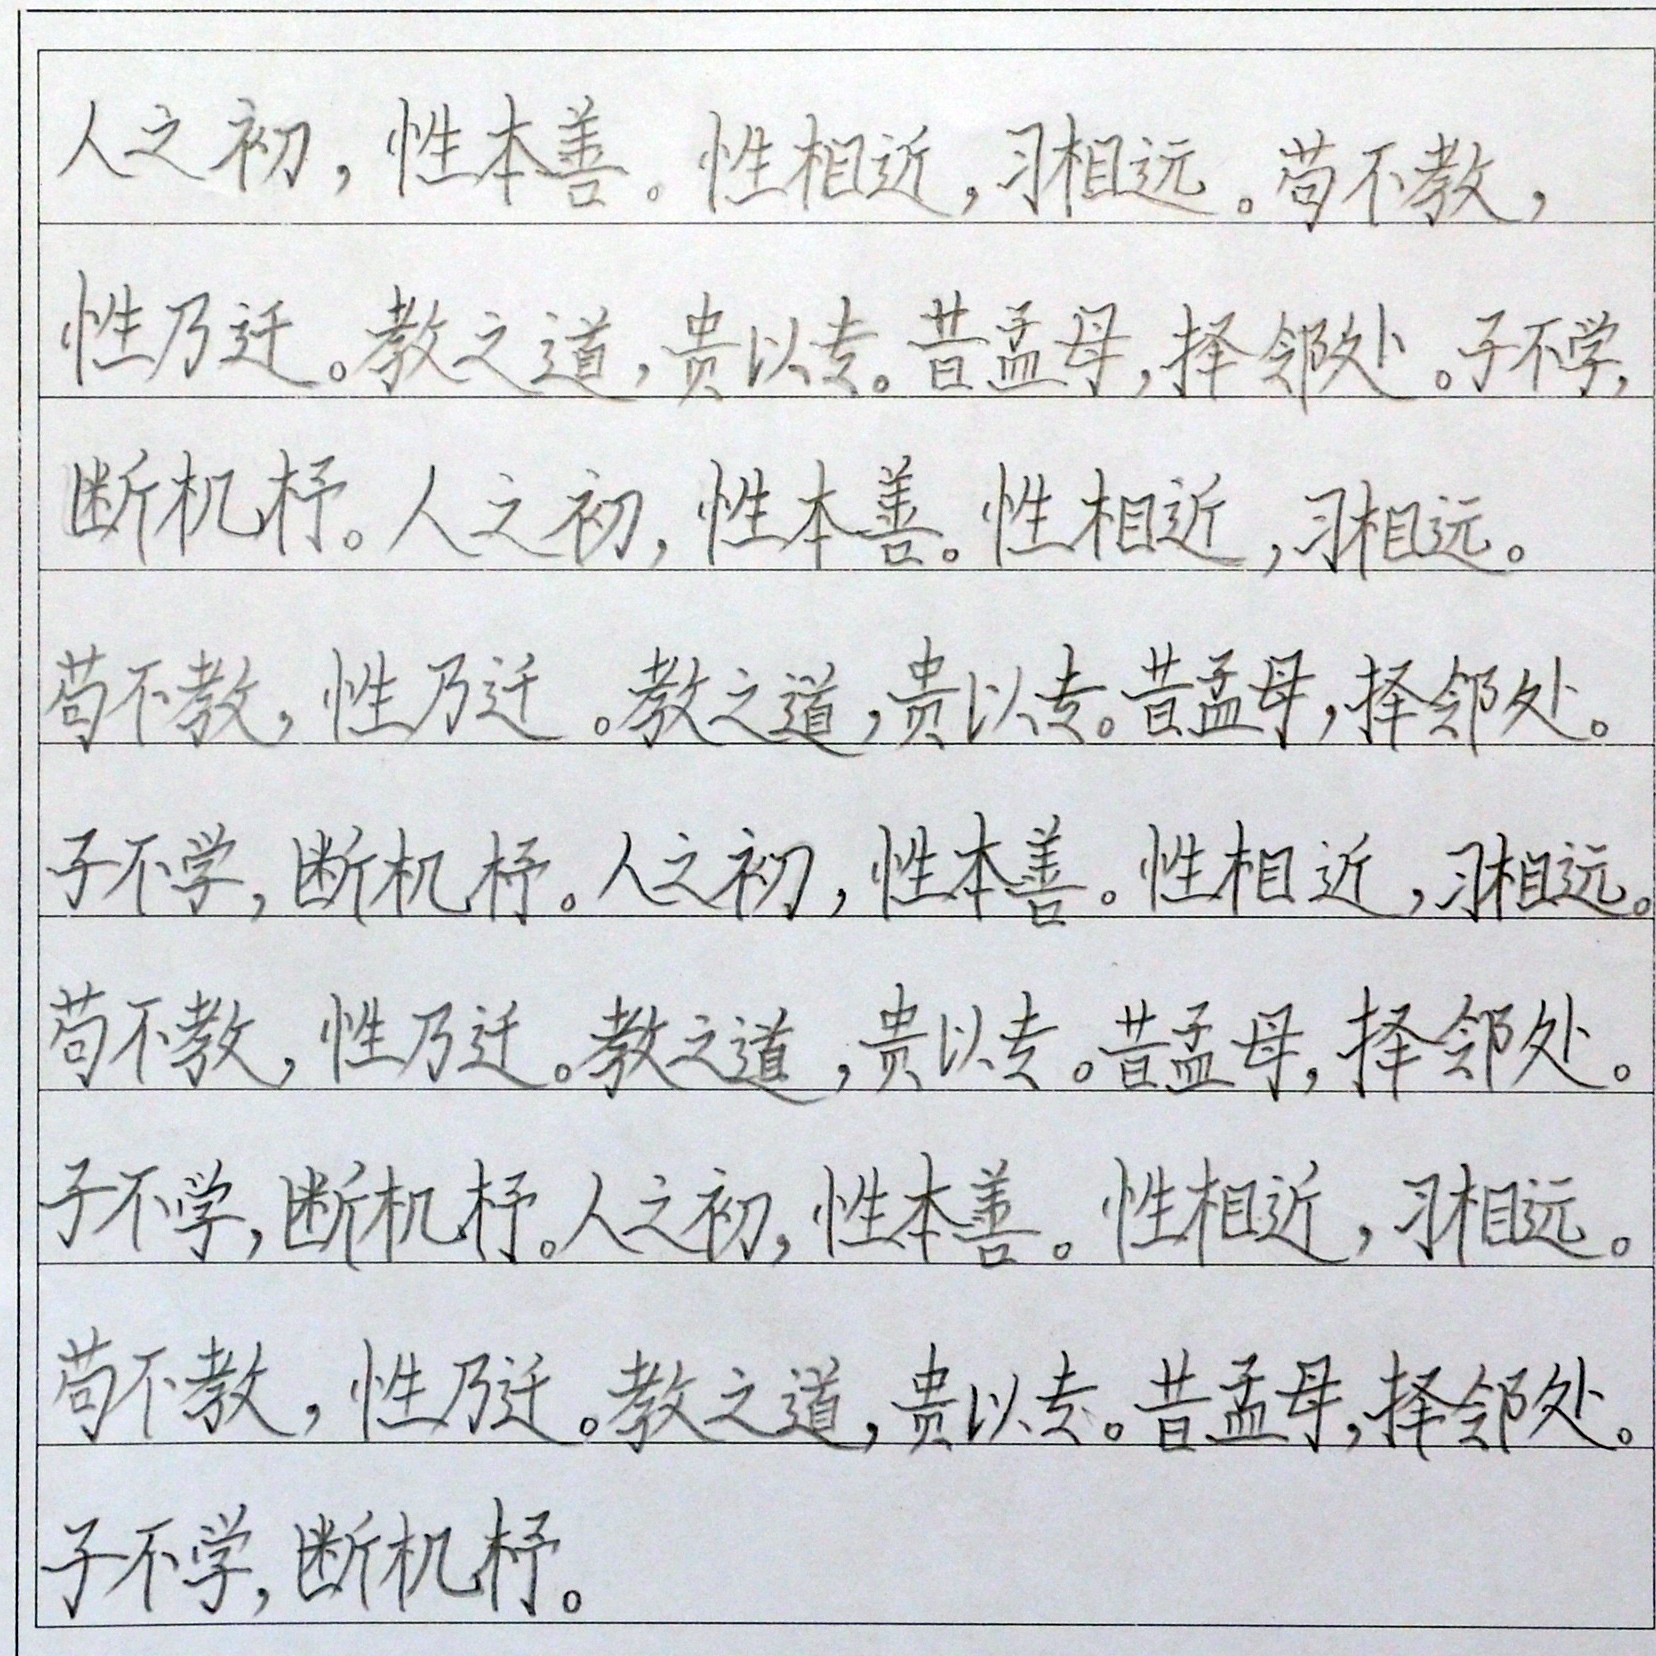 人之初，性本善。性相近，习相远。苟不教，
性乃迁。教之道，贵以专。昔孟母，择邻处。子不学，
断机杼。人之初，性本善。性相近，习相远。
苟不教，性乃迁。教之道，贵以专。昔孟母，择邻处。
子不学，断机杼。人之初，性本善。性相近，习相远。
苟不教，性乃迁。教之道，贵以专。昔孟母，择邻处。
子不学，断机杼。人之初，性本善。性相近，习相远。
苟不教，性乃迁。教之道，贵以专。昔孟母，择邻处。
子不学，断机杼。